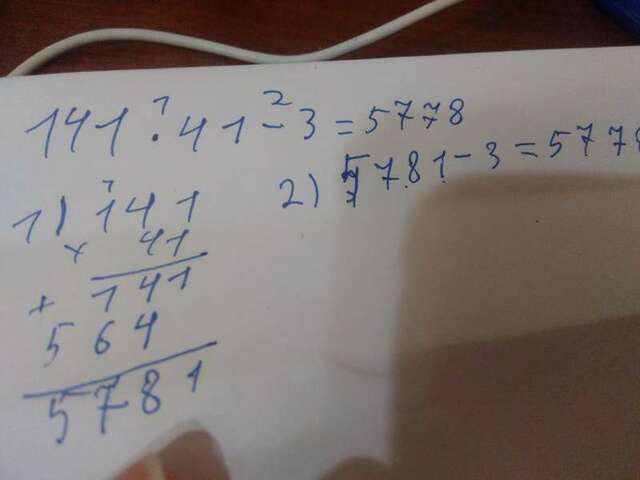 141 · 41 - 3 = 5778
1) 141
× 41
+ 141
564
5781
2) 5781 - 3 = 5778